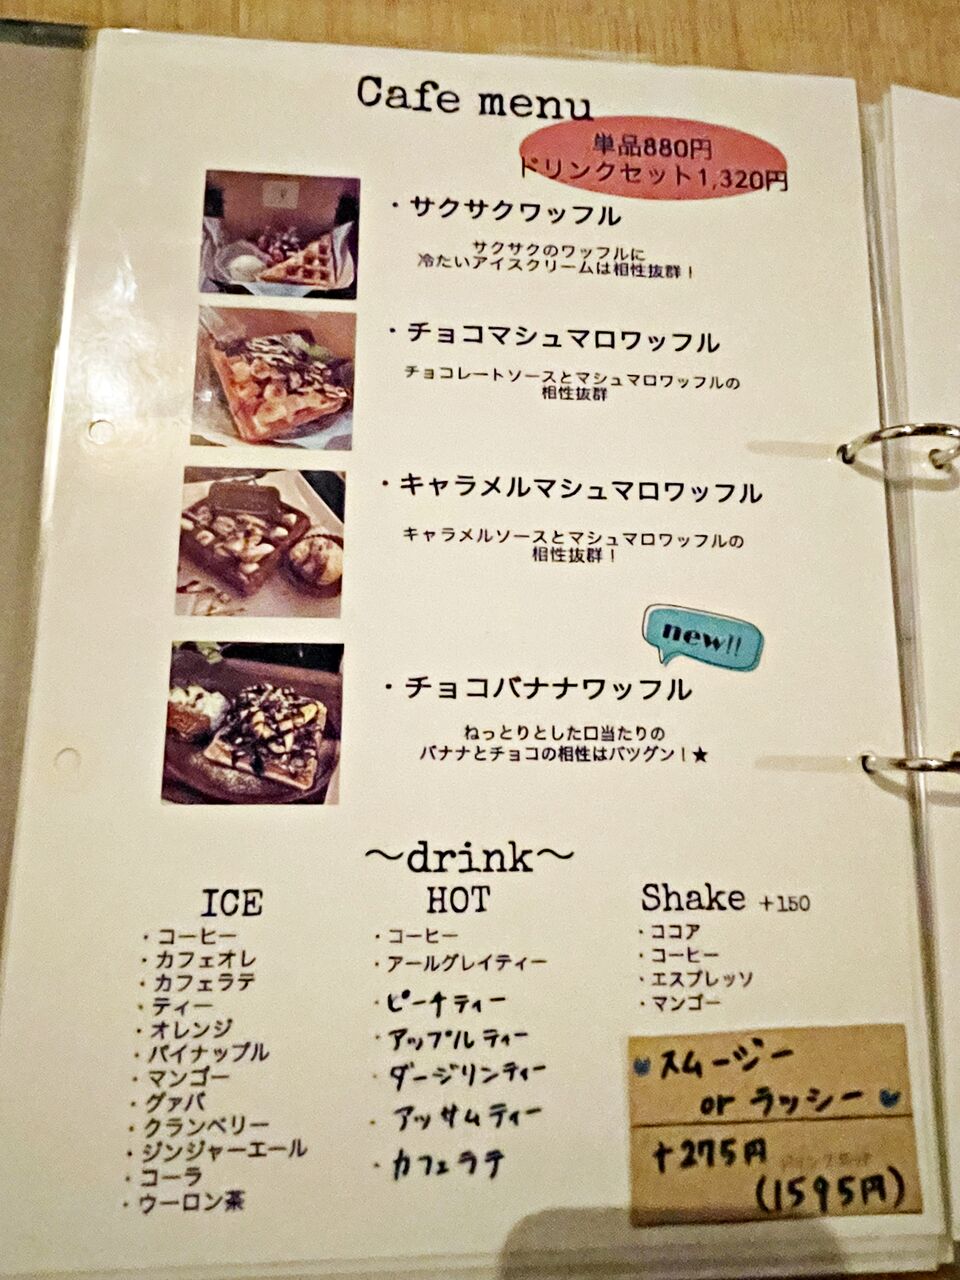 Cafe menu
単品880円
ドリンクセット1,320円
・サクサクワッフル
サクサクのワッフルに
冷たいアイスクリームは相性抜群！
・チョコマシュマロワッフル
チョコレートソースとマシュマロワッフルの
相性抜群
・キャラメルマシュマロワッフル
キャラメルソースとマシュマロワッフルの
相性抜群！
new!!
・チョコバナナワッフル
ねっとりとした口当たりの
バナナとチョコの相性はバツグン！★
～drink～
ICE
・コーヒー
・カフェオレ
・カフェラテ
・ティー
・オレンジ
・パイナップル
・マンゴー
・グァバ
・クランベリー
・ジンジャーエール
・コーラ
・ウーロン茶
HOT
・コーヒー
・アールグレイティー
・ピーチティー
・アップルティー
・ダージリンティー
・アッサムティー
・カフェラテ
Shake +150
・ココア
・コーヒー
・エスプレッソ
・マンゴー
スムージー
or ラッシー
+275円
(1595円)